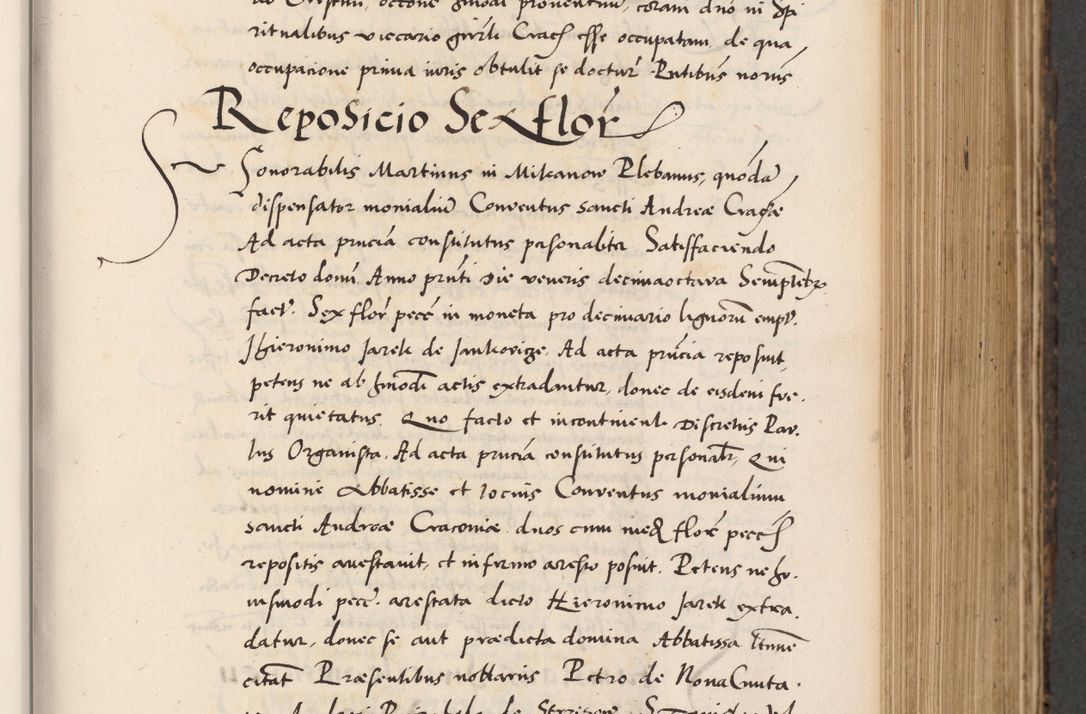 ritualibus viecario gnrli Crac esse occupatam, de qua
occupacione prima iuris obtulit se docturum Putibus notus
Reposicio Sex flor
Honorabilis Martinus in Milcanow Plebanus, quondam
dispensator monialium Conventus sancti Andreae Cracoviae
Ad acta pncia constitutus personaliter Satisfaciendo
Decreto domi Anno pnti Die veneris decimaoctava Semptembr
fact. Sex flor pece in moneta pro decimario lignorum empt.
Jhieronimo Jarek de Jankovicze. Ad acta pncia reposuit
petens ne ab hmodi actis extradantur, donec de eisdem fue.
rit quietatus. Quo facto et incontinent Discretus Pau.
lus Organista. Ad acta pncia constitutus personalr, Qui
nomine Abbatisse et tocius Conventus monialium
sancti Andreae Cracoviae duos cum med flor pecc
repositis arrestavit, et in firmo aresto posuit. Petens ne hu.
iusmodi pece. arestata dicto Hieronimo Jarek extra.
datur, donec se aut praedicta domina Abbatissa
citat Praesentibus nottariis Petro de Nova Cruta.